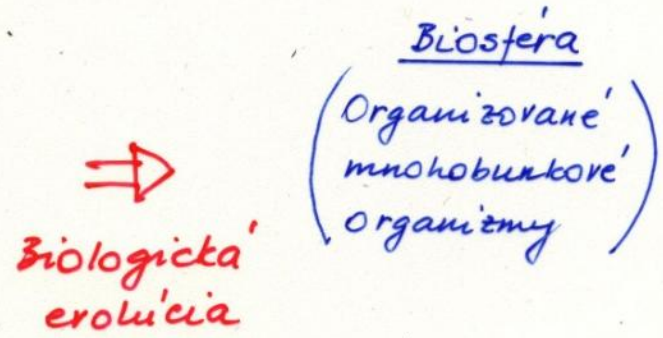 Biosféra
(Organizované
mnohobunkové
organizmy)
⇒
Biologická
evolúcia